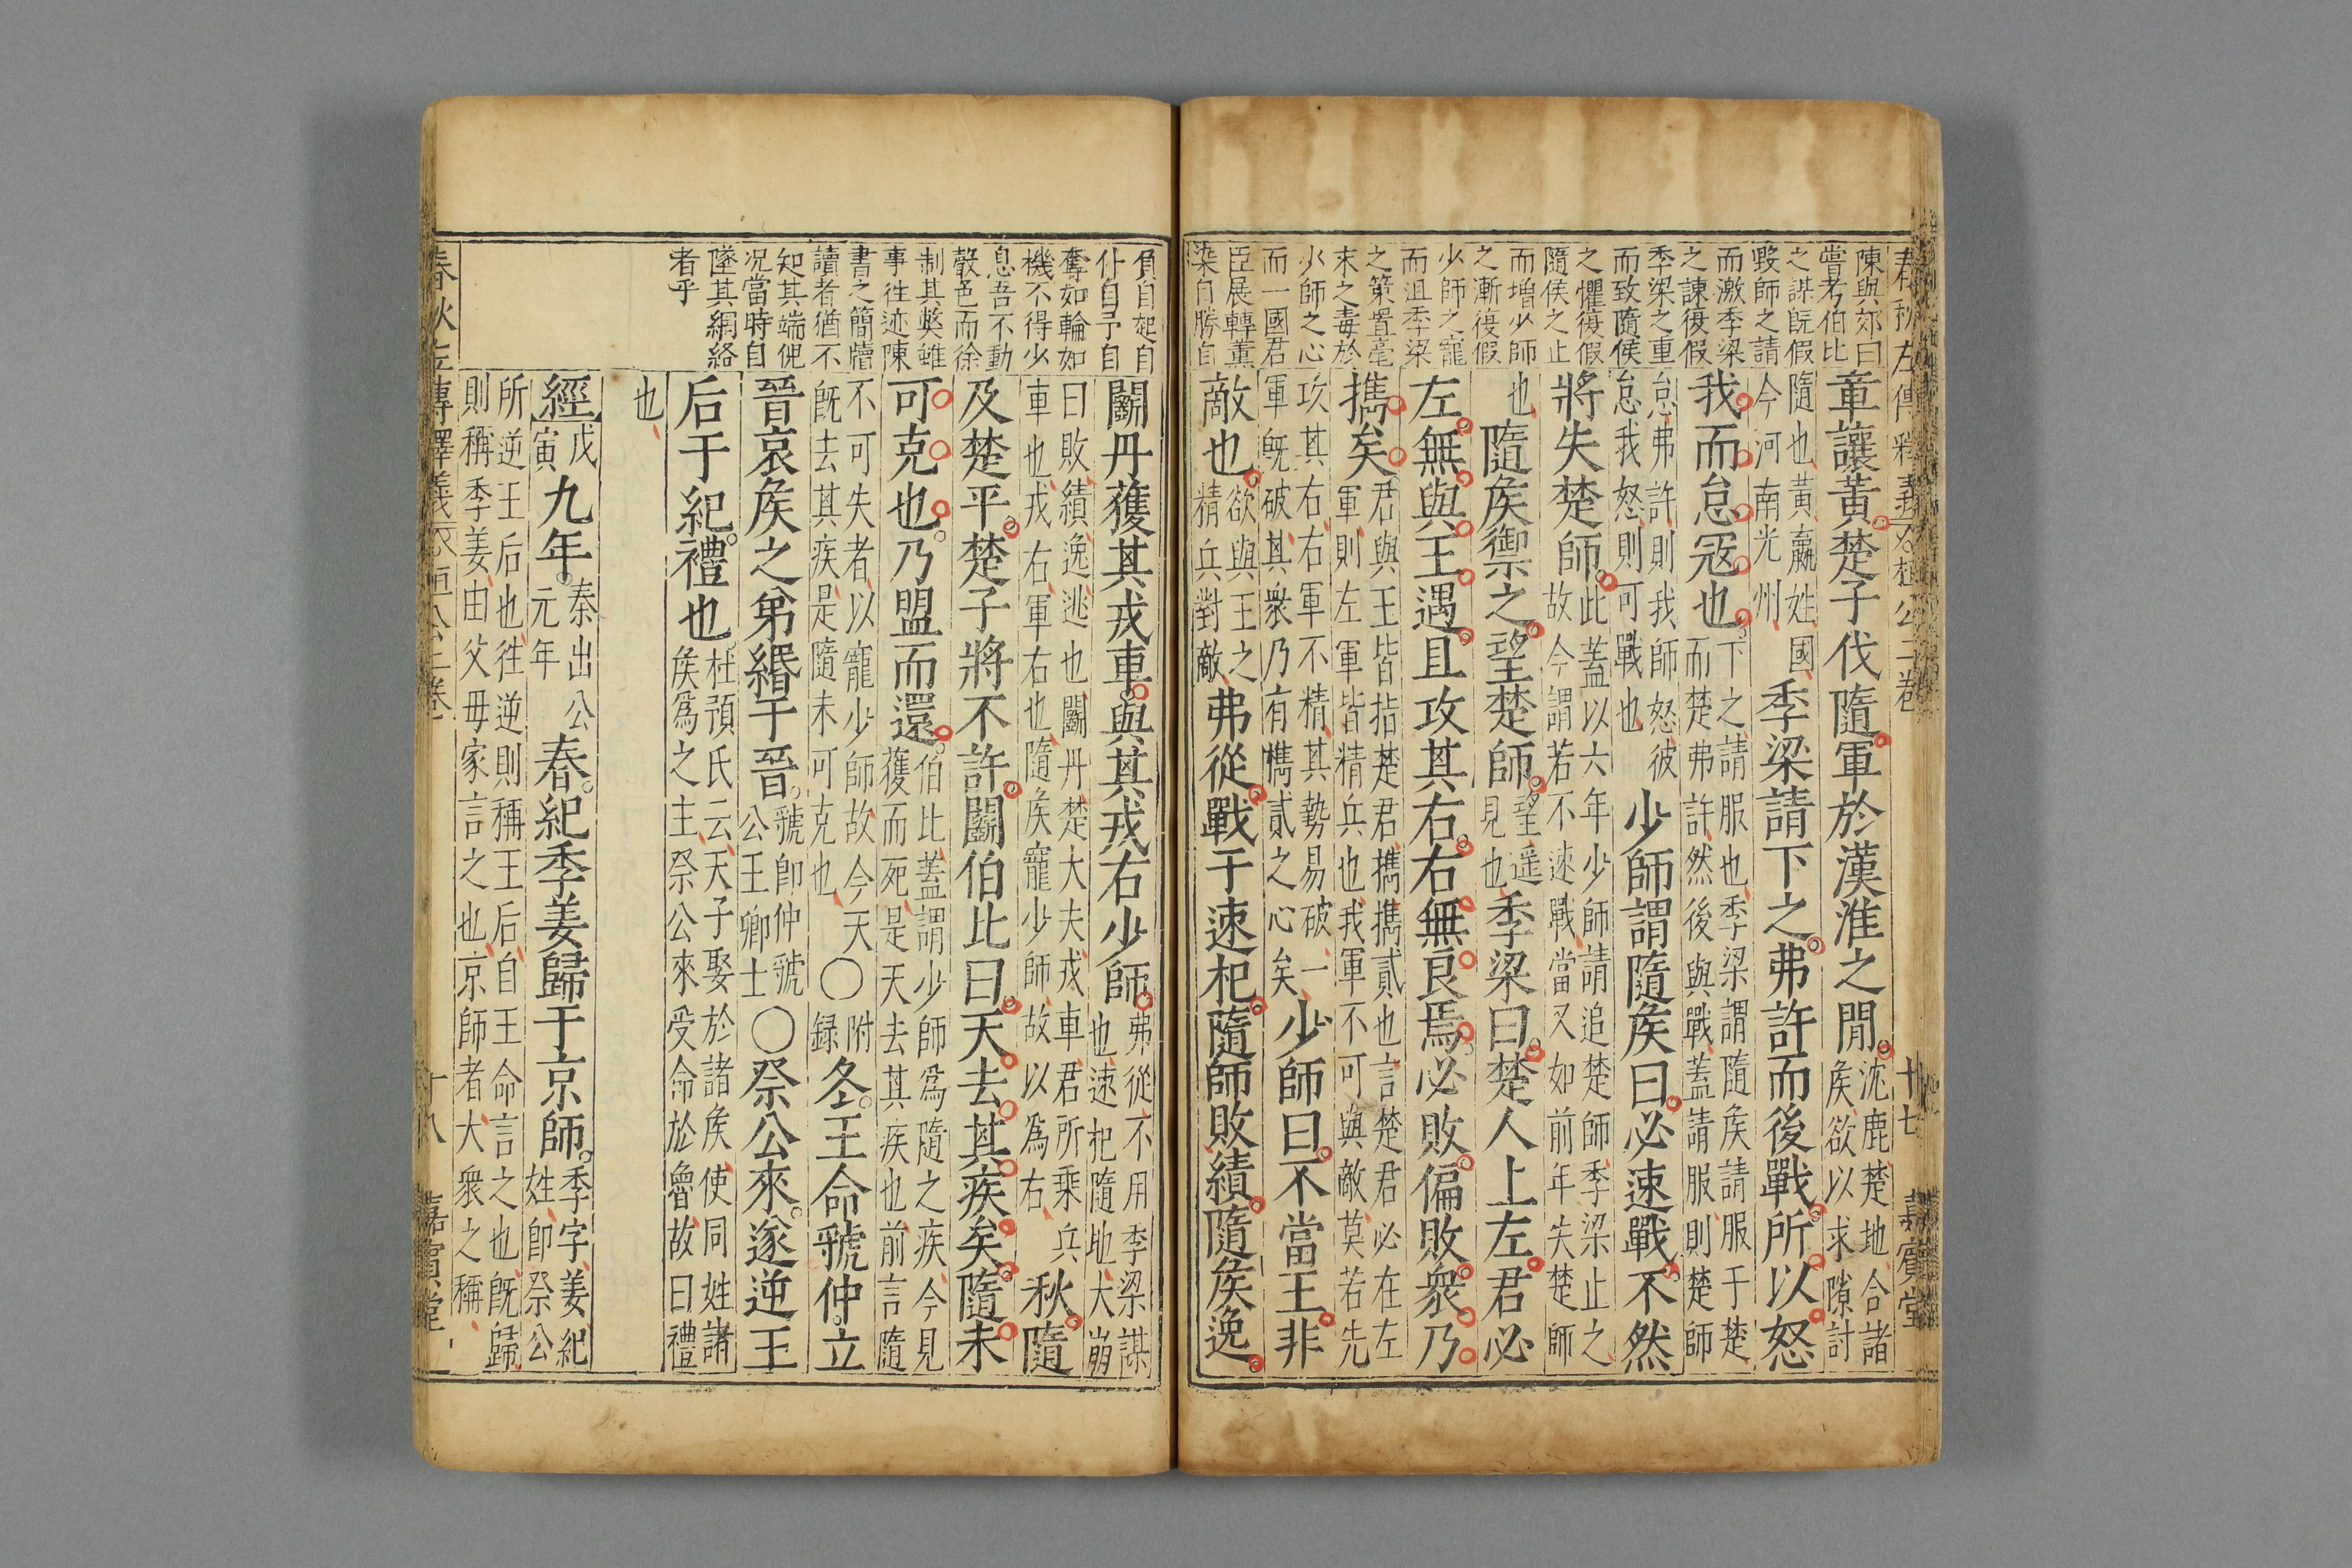 春秋左傳釋義 桓公二卷 十七 嘉賓堂
陳與郊曰
嘗考伯比
之謀既假
毀師之請
而激季梁
之諫復假
季梁之重
而致隨侯
之懼復假
隨侯之止
而增少師
之漸復假
少師之寵
而沮季梁
之策置毫
末之毒於
少師之心
而一國君
臣展轉薰
染自勝自
章讓黃楚子伐隨軍於漢淮之閒。沈鹿楚地合諸矦欲以求隙討
隨也黃嬴姓國今河南光州季梁請下之弗許而後戰所以怒
我而怠寇也。下之請服也季梁謂隨矦請服于楚而楚弗許然後與戰蓋請服則楚師
怠弗許則我師怒彼怠我怒則可戰也少師謂隨矦曰必速戰不然
將失楚師。此蓋以六年少師請追楚師季梁止之故今謂若不速戰當又如前年失楚師
也隨矦禦之望楚師。望遥見也季梁曰。楚人上左君必
左無與王遇且攻其右。右無良焉必敗偏敗衆乃
攜矣君與王皆指楚君攜攜貳也言楚君必在左軍則左軍皆精兵也我軍不可與敵莫若先
攻其右右軍不精其勢易破一軍旣破其衆乃有攜貳之心矣少師曰不當王非
敵也欲與王之精兵對敵弗從戰于速杞隨師敗績隨矦逸
負自起自
仆自予自
奪如輪如
機不得少
息吾不動
聲色而徐
制其獘雖
事往迹陳
書之簡牘
讀者猶不
知其端倪
况當時自
墜其網絡
者乎
鬭丹獲其戎車。與其戎右少師弗從不用季梁謀也速杞隨地大崩
曰敗績逸逃也鬭丹楚大夫戎車君所乘兵車也戎右軍右也隨矦寵少師故以為右秋隨
及楚平。楚子將不許鬭伯比曰。天去其疾矣。隨未
可克也。乃盟而還。伯比蓋謂少師為隨之疾今見獲而死是天去其疾也前言隨
不可失者以寵少師故今天旣去其疾是隨未可克也〇附録冬。王命虢仲。立
晉哀矦之弟緡于晉。虢卽仲虢公王卿士〇祭公來。遂逆王
后于紀。禮也。杜預氏云天子娶於諸矦使同姓諸矦為之主祭公來受命於魯故曰禮
也
經戊寅九年。秦出公元年春。紀季姜歸于京師。季字姜紀姓卽祭公
所逆王后也往逆則稱王后自王命言之也旣歸則稱季姜由父母家言之也京師者大衆之稱
春秋左傳釋義 桓公二卷 十八 嘉賓堂